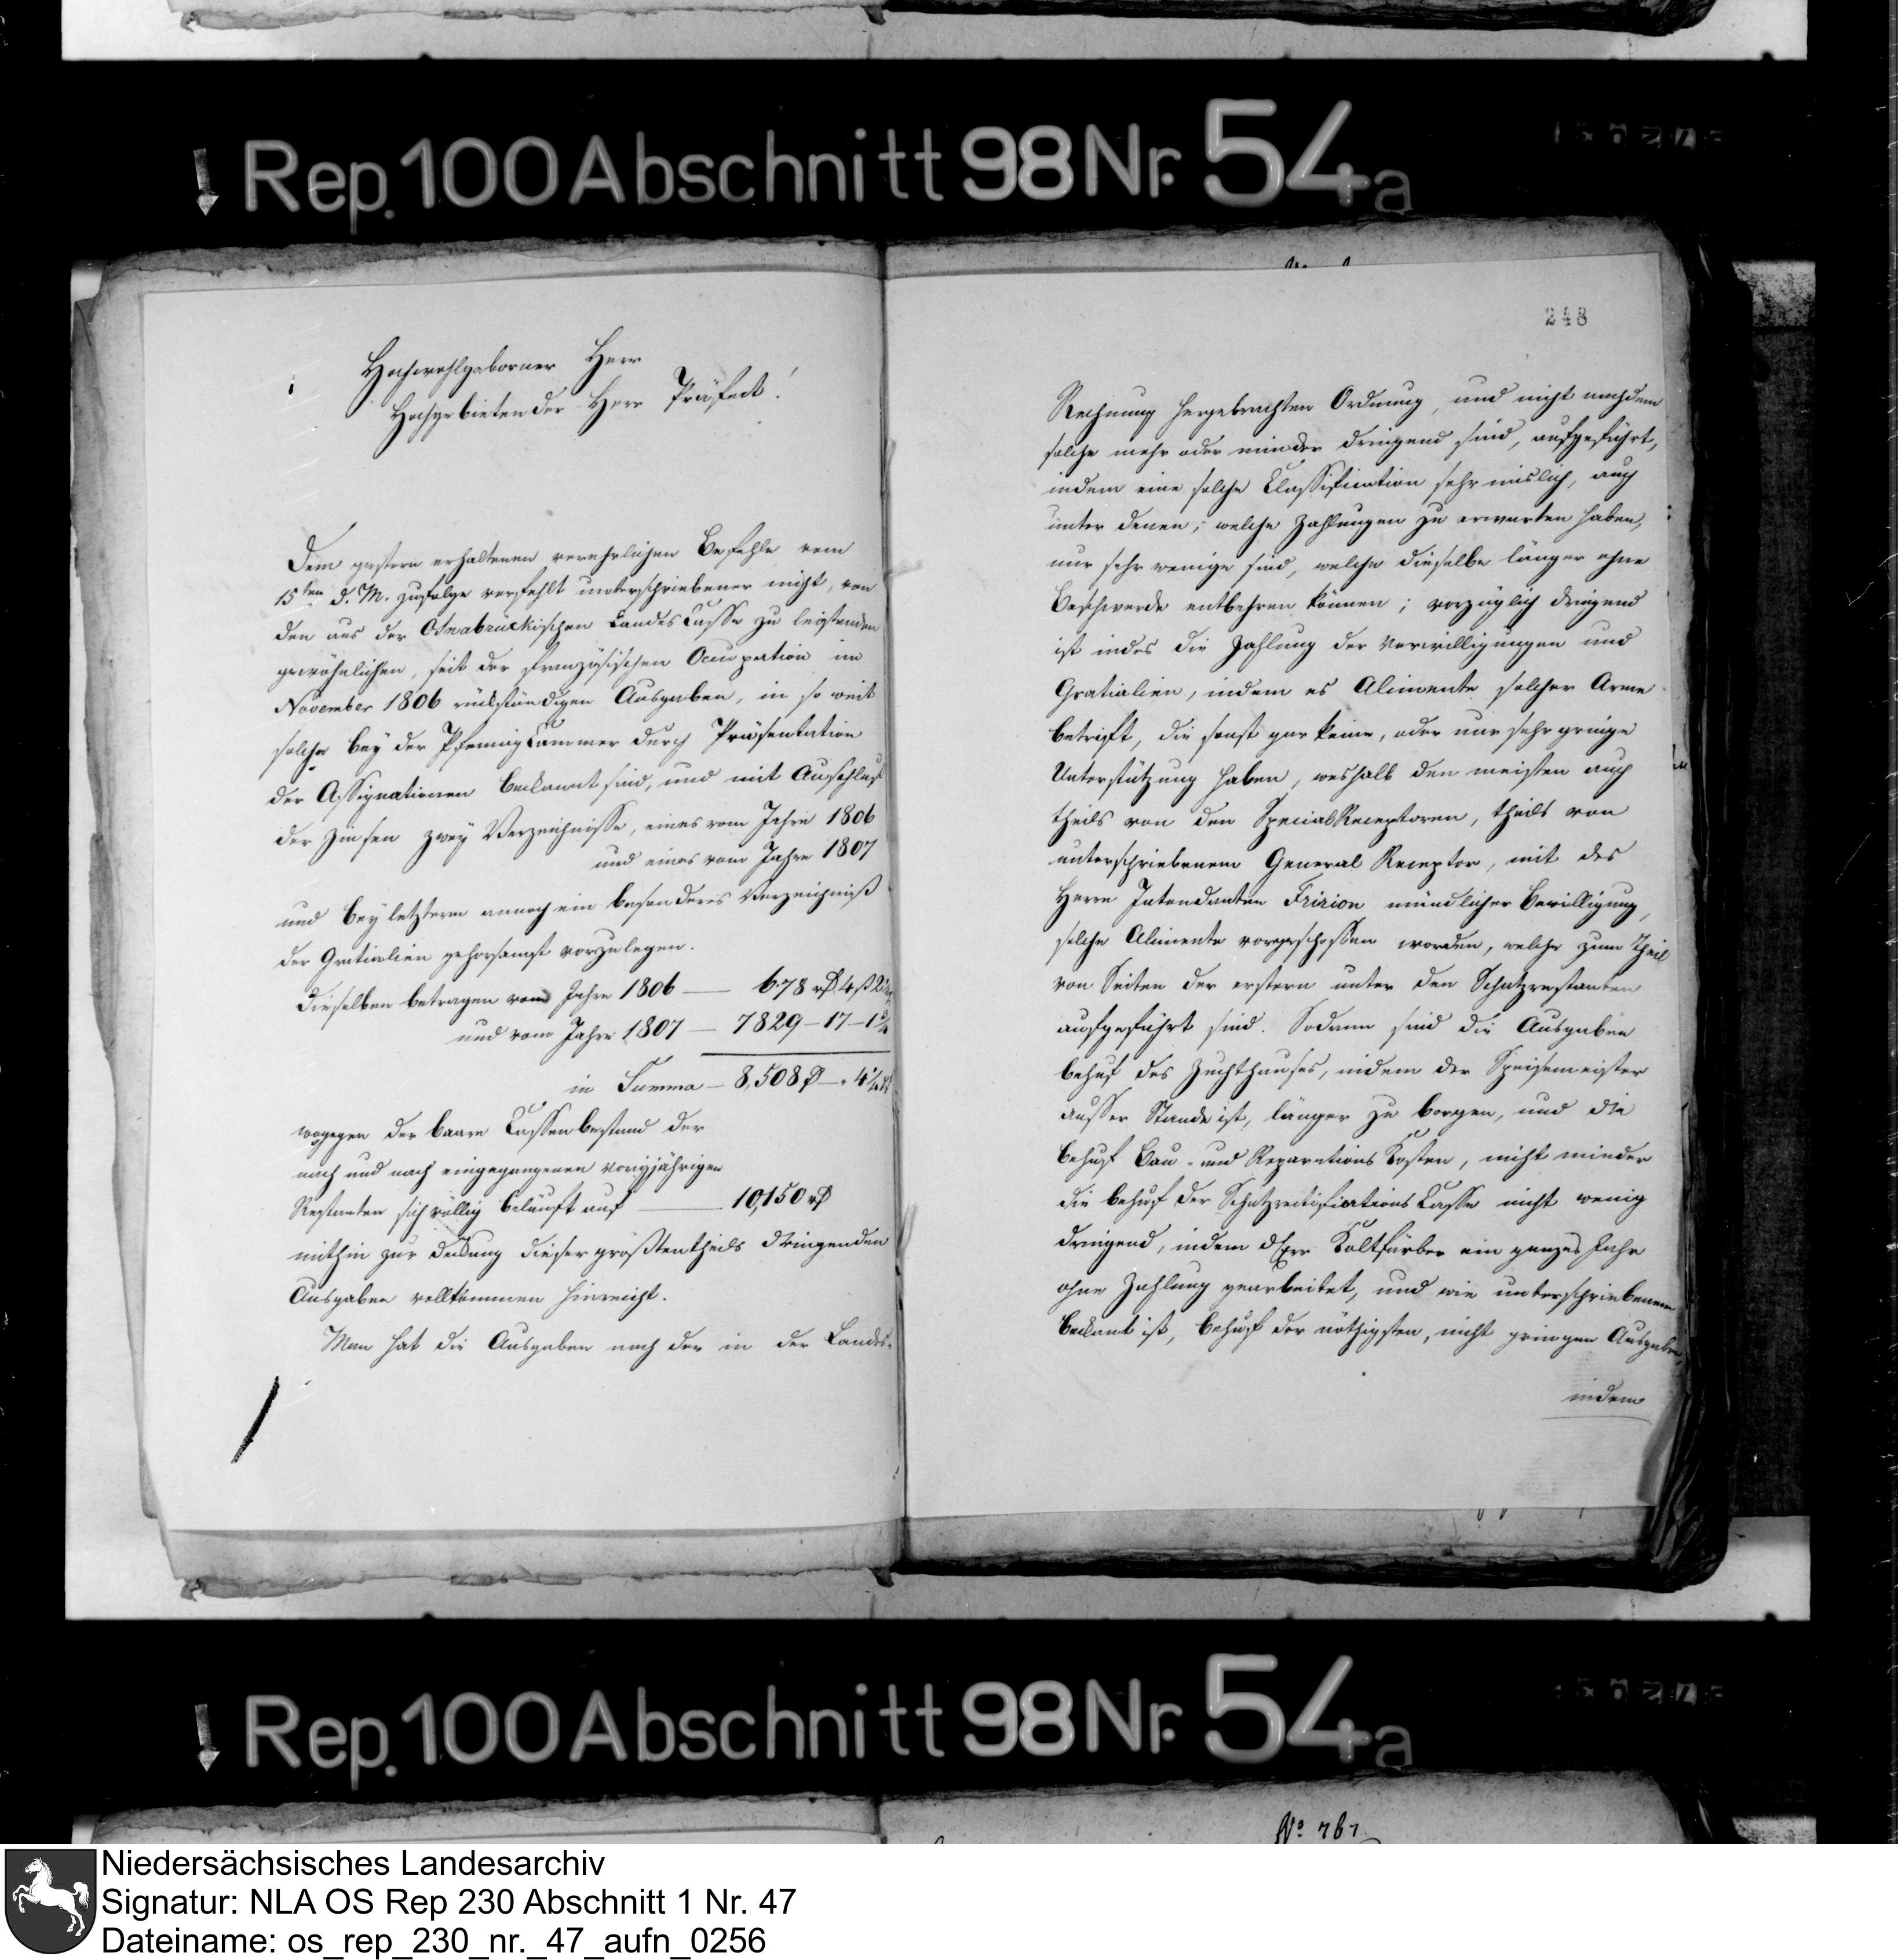 Rep. 100 Abschnitt 98 Nr. 54a
Hochwohlgeborner Herr
Hochgebietender Herr Präfect!
Dem gestern erhaltenen verehrlichen Befehle vom
15ten d. M. zufolge verfehlt unterschriebener nicht, von
den aus der Osnabrückischen LandesCasse zu leistenden
gewöhnlichen, seit der französischen Occupation im
November 1806 rückständigen Ausgaben, in so weit
solche bey der PfennigCammer durch Präsentation
der Assignationen bekannt sind, und mit Ausschluß
der Zinsen zwey Verzeichnisse, eines vom Jahre 1806
und eines vom Jahre 1807
und bey letzterm annoch ein besonderes Verzeichniß
der Gratialien gehorsamst vorzulegen.
Dieselben betragen vom Jahre 1806 — 678 rß 4 ß 2
und vom Jahre 1807 — 7829 – 17 – 1
in Summa — 8,508 ß — „ 4
wogegen der baare Cassenbestand der
nach und nach eingegangenen vorigjährigen
Restanten sich völlig beläuft auf — 10,150 rß
mithin zur Deckung dieser größtentheils dringenden
Ausgaben vollkommen hinreicht.
Man hat die Ausgaben nach der in der Landes-
248
Rechnung hergebrachten Ordnung, und nicht nachdem
solche mehr oder minder dringend sind, aufgeführt,
indem eine solche Classification sehr mislich, auch
unter denen, welche Zahlungen zu erwarten haben,
nur sehr wenige sind, welche dieselbe länger ohne
Beschwerde entbehren können; vorzüglich dringend
ist indes die Zahlung der Verwilligungen und
Gratialien, indem es Alimente solcher Arme
betrifft, die sonst gar keine, oder nur sehr geringe
Unterstützung haben, weshalb den meisten auch
theils von den SpecialReceptoren, theils von
unterschriebenem General Receptor, mit des
Herrn Intendanten Fririon mündlicher Bewilligung,
solche Alimente vorgeschossen worden, welche zum Theil
von Seiten der erstern unter den Schatzrestanten
aufgeführt sind. Sodann sind die Ausgaben
behuf des Zuchthauses, indem der Speisemeister
ausser Stande ist, länger zu borgen, und die
behuf Bau- und ReparationsKosten, nicht minder
die behuf der SchatzrectificationsCasse nicht wenig
dringend, indem Kaltfärber ein ganzes Jahr
ohne Zahlung gearbeitet, und wie unterschriebenem
bekant ist, behuf der nöthigsten, nicht geringen Ausgaben,
indem
Rep. 100 Abschnitt 98 Nr. 54a
No 767.
Niedersächsisches Landesarchiv
Signatur: NLA OS Rep 230 Abschnitt 1 Nr. 47
Dateiname: os_rep_230_nr._47_aufn_0256